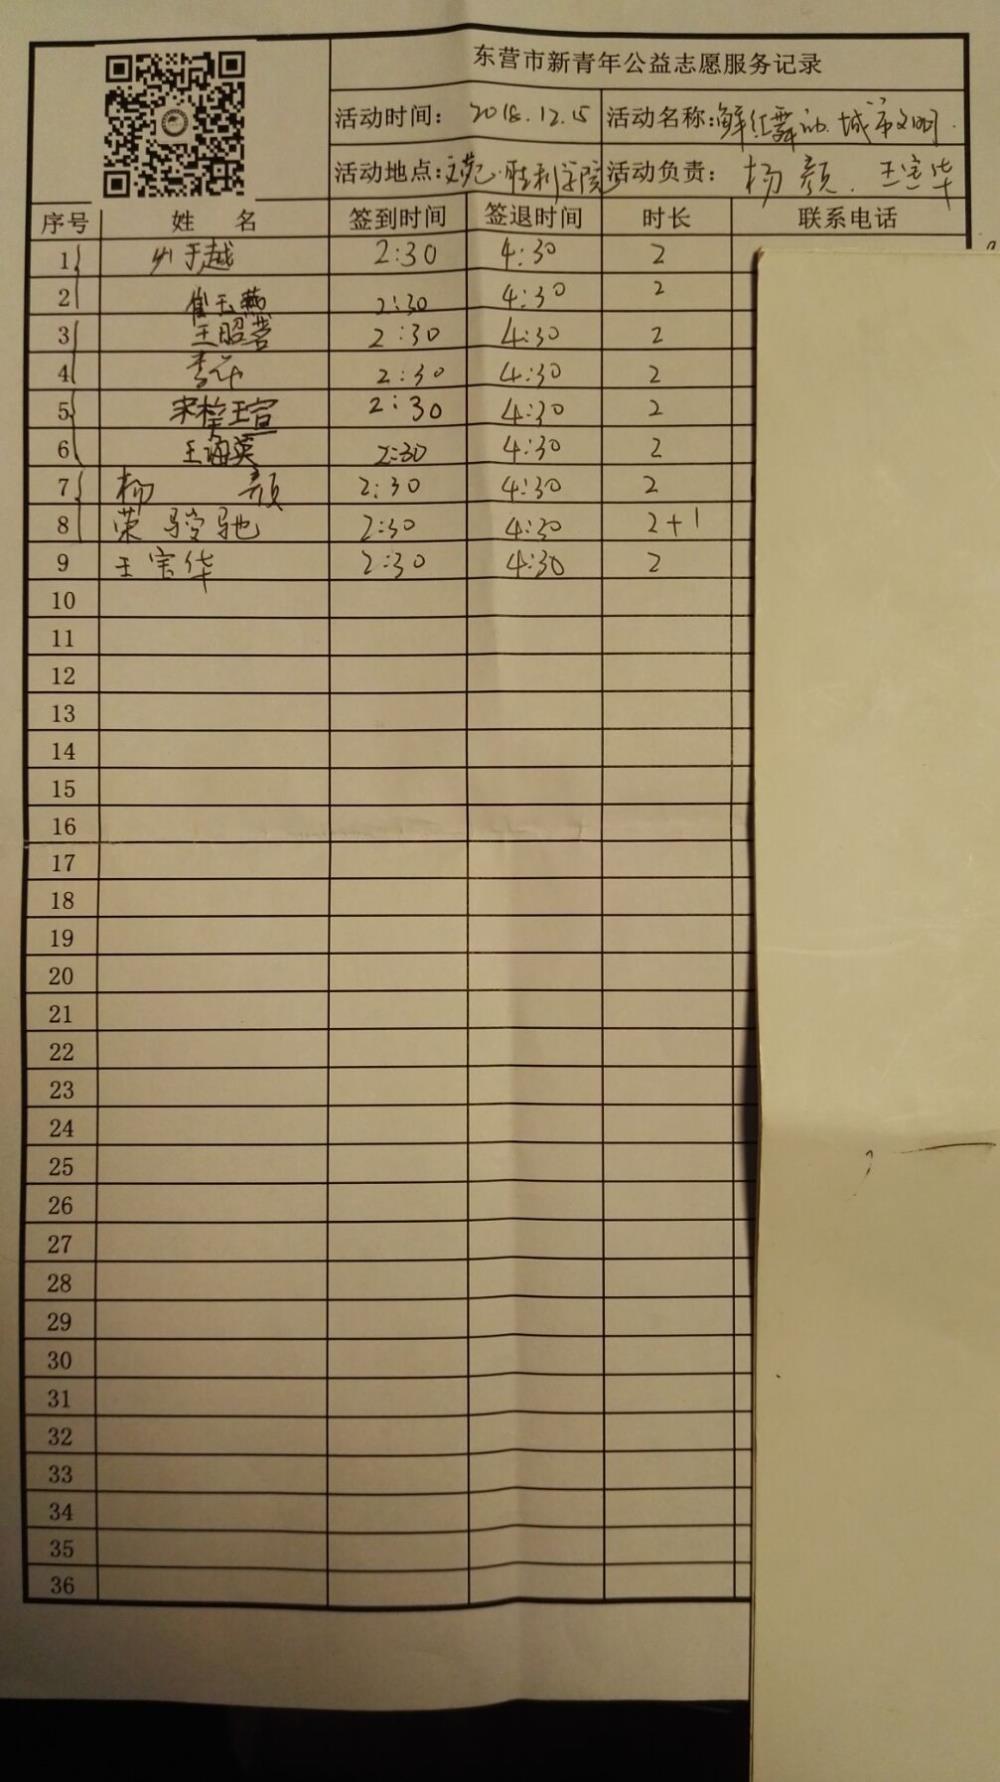 东营市新青年公益志愿服务记录
活动时间： 2018.12.15 活动名称：鲜红舞动.城市文明.
活动地点：胜利学院 活动负责： 杨颜. 王宝华
序号 姓 名 签到时间 签退时间 时长 联系电话
1 于越 2:30 4:30 2
2 崔玉燕 2:30 4:30 2
3 王昭蓉 2:30 4:30 2
4 李 2:30 4:30 2
5 宋梓瑄 2:30 4:30 2
6 王海英 2:30 4:30 2
7 杨 颜 2:30 4:30 2
8 荣 驰 2:30 4:30 2+1
9 王宝华 2:30 4:30 2
10
11
12
13
14
15
16
17
18
19
20
21
22
23
24
25
26
27
28
29
30
31
32
33
34
35
36